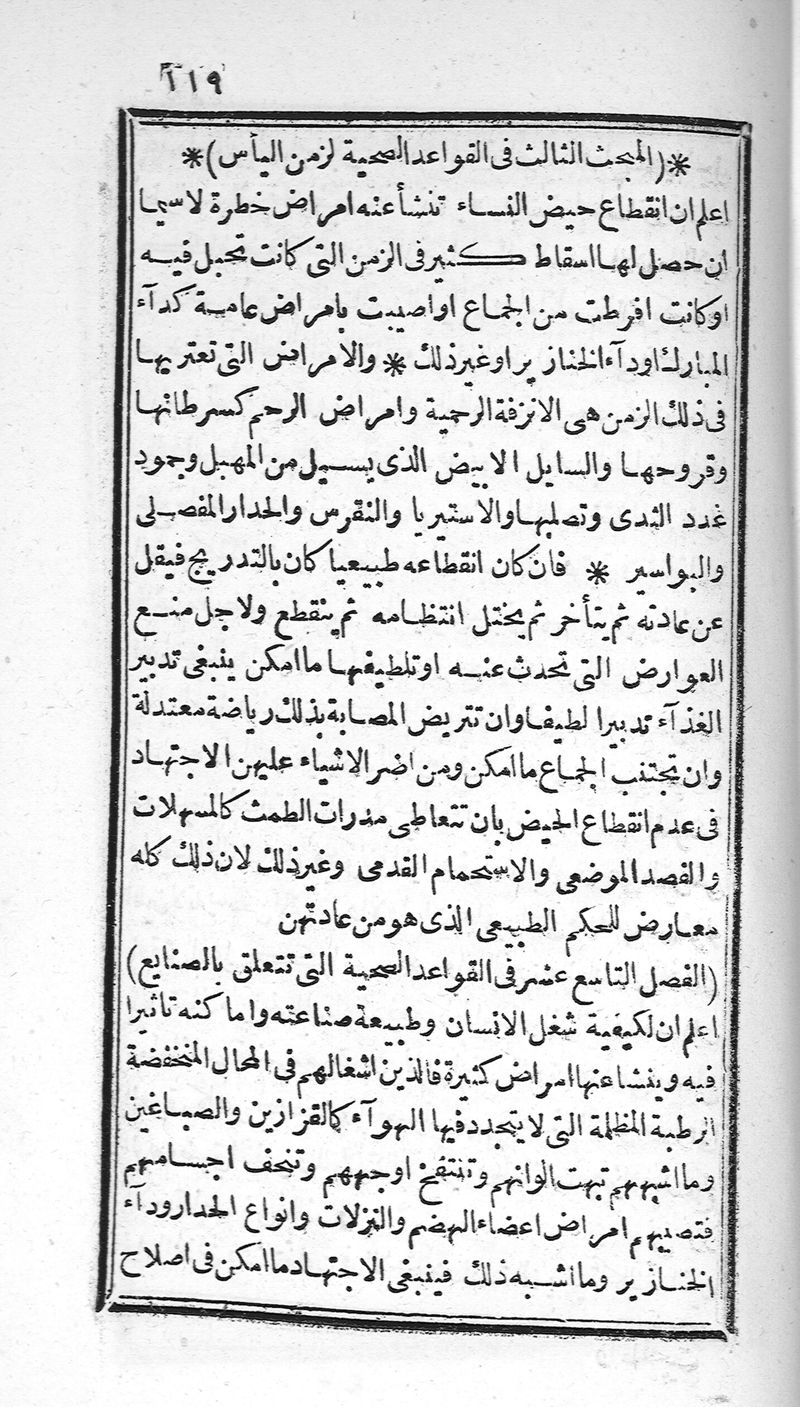 ١١٩
*(المبحث الثالث فى القواعد الصحية لزمن اليأس)*
اعلم ان انقطاع حيض النساء تنشأ عنه امراض خطرة لاسيما
ان حصل لها اسقاط كثير فى الزمن التى كانت تحبل فيه
او كانت افرطت من الجماع او اصيبت بامراض عامية كدآء
المبارك او دآء الخنازير او غير ذلك * والامراض التى تعتريها
فى ذلك الزمن هى الانزفة الرحمية وامراض الرحم كسرطانها
وقروحها والسايل الابيض الذى يسيل من المهبل وجمود
غدد الثدى وتصلبها والاستيريا والنقرس والحدار المفصلى
والبواسير * فان كان انقطاعه طبيعيا كان بالتدريج فيقل
عن عادته ثم يتأخر ثم يختل انتظامه ثم ينقطع ولاجل منع
العوارض التى تحدث عنه او تلطيفها ما امكن ينبغى تدبير
الغذآء تدبيرا لطيفا وان تتريض المصابة بذلك رياضة معتدلة
وان تجتنب الجماع ما امكن ومن اضر الاشياء عليهن الاجتهاد
فى عدم انقطاع الحيض بان تتعاطى مدرات الطمث كالمسهلات
والفصد الموضعى والاستحمام القدمى وغير ذلك لان ذلك كله
معارض للحكم الطبيعى الذى هو من عادتهن
(الفصل التاسع عشر فى القواعد الصحية التى تتعلق بالصنايع)
اعلم ان لكيفية شغل الانسان وطبيعة صناعته واماكنه تاثيرا
فيه وينشا عنها امراض كثيرة فالذين اشغالهم فى المحال المنخفضة
الرطبة المظلمة التى لا يتجدد فيها الهوآء كالقزازين والصباغين
وما اشبههم تبهت الوانهم وتنتفخ اوجههم وتنحف اجسامهم
فتصيبهم امراض اعضاء الهضم والنزلات وانواع الحدار ودآء
الخنازير وما اشبه ذلك فينبغى الاجتهاد ما امكن فى اصلاح